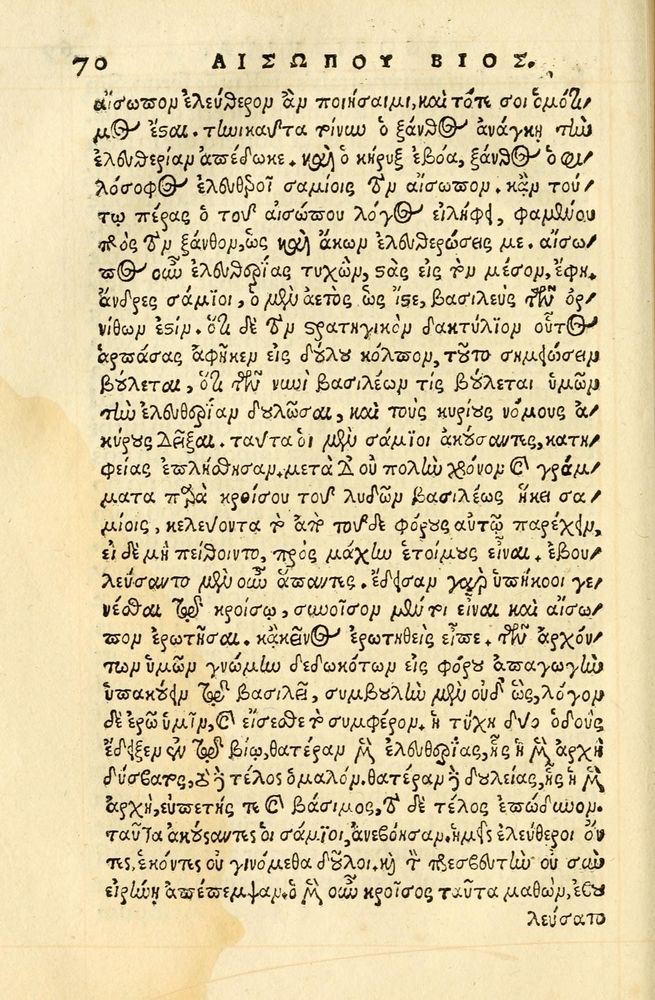 70 ΑΙΣΩΠΟΥ ΒΙΟΣ.
αἴσωπον ἐλεύθερον ἂν ποιήσαιμι, καὶ τότε σοι ὁμότι/
μος ἔσαι. τηνικαῦτα τοίνυν ὁ ξάνθος ἀνάγκῃ τὴν
ἐλευθερίαν ἀπέδωκε. καὶ ὁ κῆρυξ ἐβόα, ξάνθος ὁ φι/
λόσοφος ἐλευθεροῖ σαμίοις τὸν αἴσωπον. κἂν τού/
τῳ πέρας ὁ τοῦ αἰσώπου λόγος εἴληφε, φαμένου
πρὸς τὸν ξάνθον, ὡς καὶ ἄκων ἐλευθερώσεις με. αἴσω/
πος οὖν ἐλευθερίας τυχὼν, στὰς εἰς τὸ μέσον, ἔφη.
ἄνδρες σάμιοι, ὁ μὲν ἀετὸς ὡς ἴστε, βασιλεὺς τῶν ὀρ/
νίθων ἐστίν. ὅτι δὲ τὸν στρατηγικὸν δακτύλιον οὗτος
ἁρπάσας ἀφῆκεν εἰς δούλου κόλπον, τοῦτο σημαίνειν
βούλεται, ὅτι τῶν νυνὶ βασιλέων τίς βούλεται ὑμῶν
τὴν ἐλευθερίαν δουλῶσαι, καὶ τοὺς κυρίους νόμους ἀ/
κύρους δεῖξαι. ταῦτα οἱ μὲν σάμιοι ἀκούσαντες, κατη/
φείας ἐπλήσθησαν. μετὰ δ' οὐ πολὺν χρόνον καὶ γράμ/
ματα παρὰ κροίσου τοῦ λυδῶν βασιλέως ἧκε σα/
μίοις, κελεύοντα τὸ ἀπὸ τοῦδε φόρους αὐτῷ παρέχειν,
εἰ δὲ μὴ πείθοιντο, πρὸς μάχην ἑτοίμους εἶναι. ἐβου/
λεύσαντο μὲν οὖν ἅπαντες. ἔδεισαν γὰρ ὑπήκοοι γε/
νέσθαι τῷ κροίσῳ, συνοῖσον μέντοι εἶναι καὶ αἴσω/
πον ἐρωτῆσαι. κἀκεῖνος ἐρωτηθεὶς εἶπε. τῶν ἀρχόν/
των ὑμῶν γνώμην δεδωκότων εἰς φόρου ἀπαγωγὴν
ὑπακούειν τῷ βασιλεῖ, συμβουλὴν μὲν οὐδ' ὣς, λόγον
δὲ ἐρῶ ὑμῖν, καὶ εἴσεσθε τὸ συμφέρον. ἡ τύχη δύο ὁδοὺς
ἔδειξεν ἐν τῷ βίῳ, θατέραν μὲν ἐλευθερίας, ἧς ἡ μὲν ἀρχὴ
δύσβατος, τὸ δὲ τέλος ὁμαλόν. θατέραν δὲ δουλείας, ἧς ἡ μὲν
ἀρχὴ, εὐπετής τε καὶ βάσιμος, τὸ δὲ τέλος ἐπώδυνον.
ταῦτα ἀκούσαντες οἱ σάμιοι, ἀνεβόησαν. ἡμεῖς ἐλεύθεροι ὄν/
τες, ἑκόντες οὐ γινόμεθα δοῦλοι. καὶ τὸν πρεσβευτὴν οὐ σὺν
εἰρήνῃ ἀπέπεμψαν. ὁ μὲν οὖν κροῖσος ταῦτα μαθὼν, ἐβου
λεύσατο